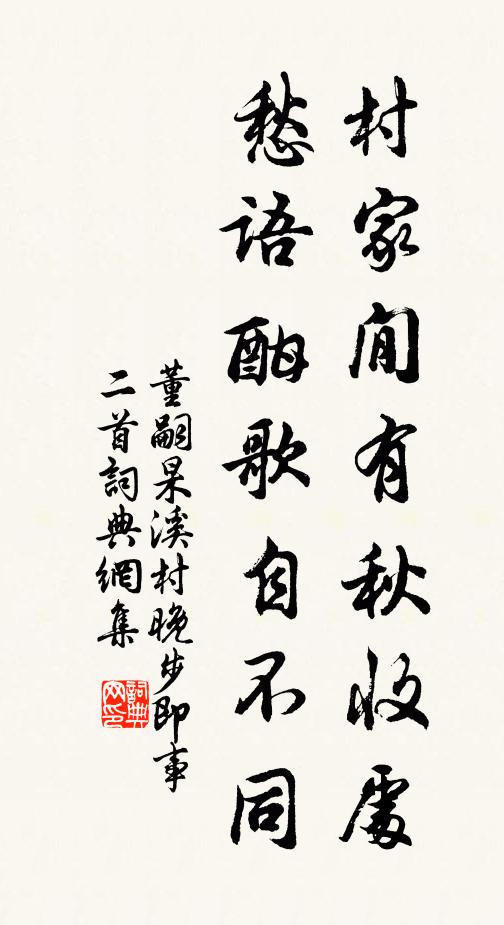 村家閒有秋收處
愁語酣歌自不同
董嗣杲溪村晚步即事
二首詞典網集
詞典
网印